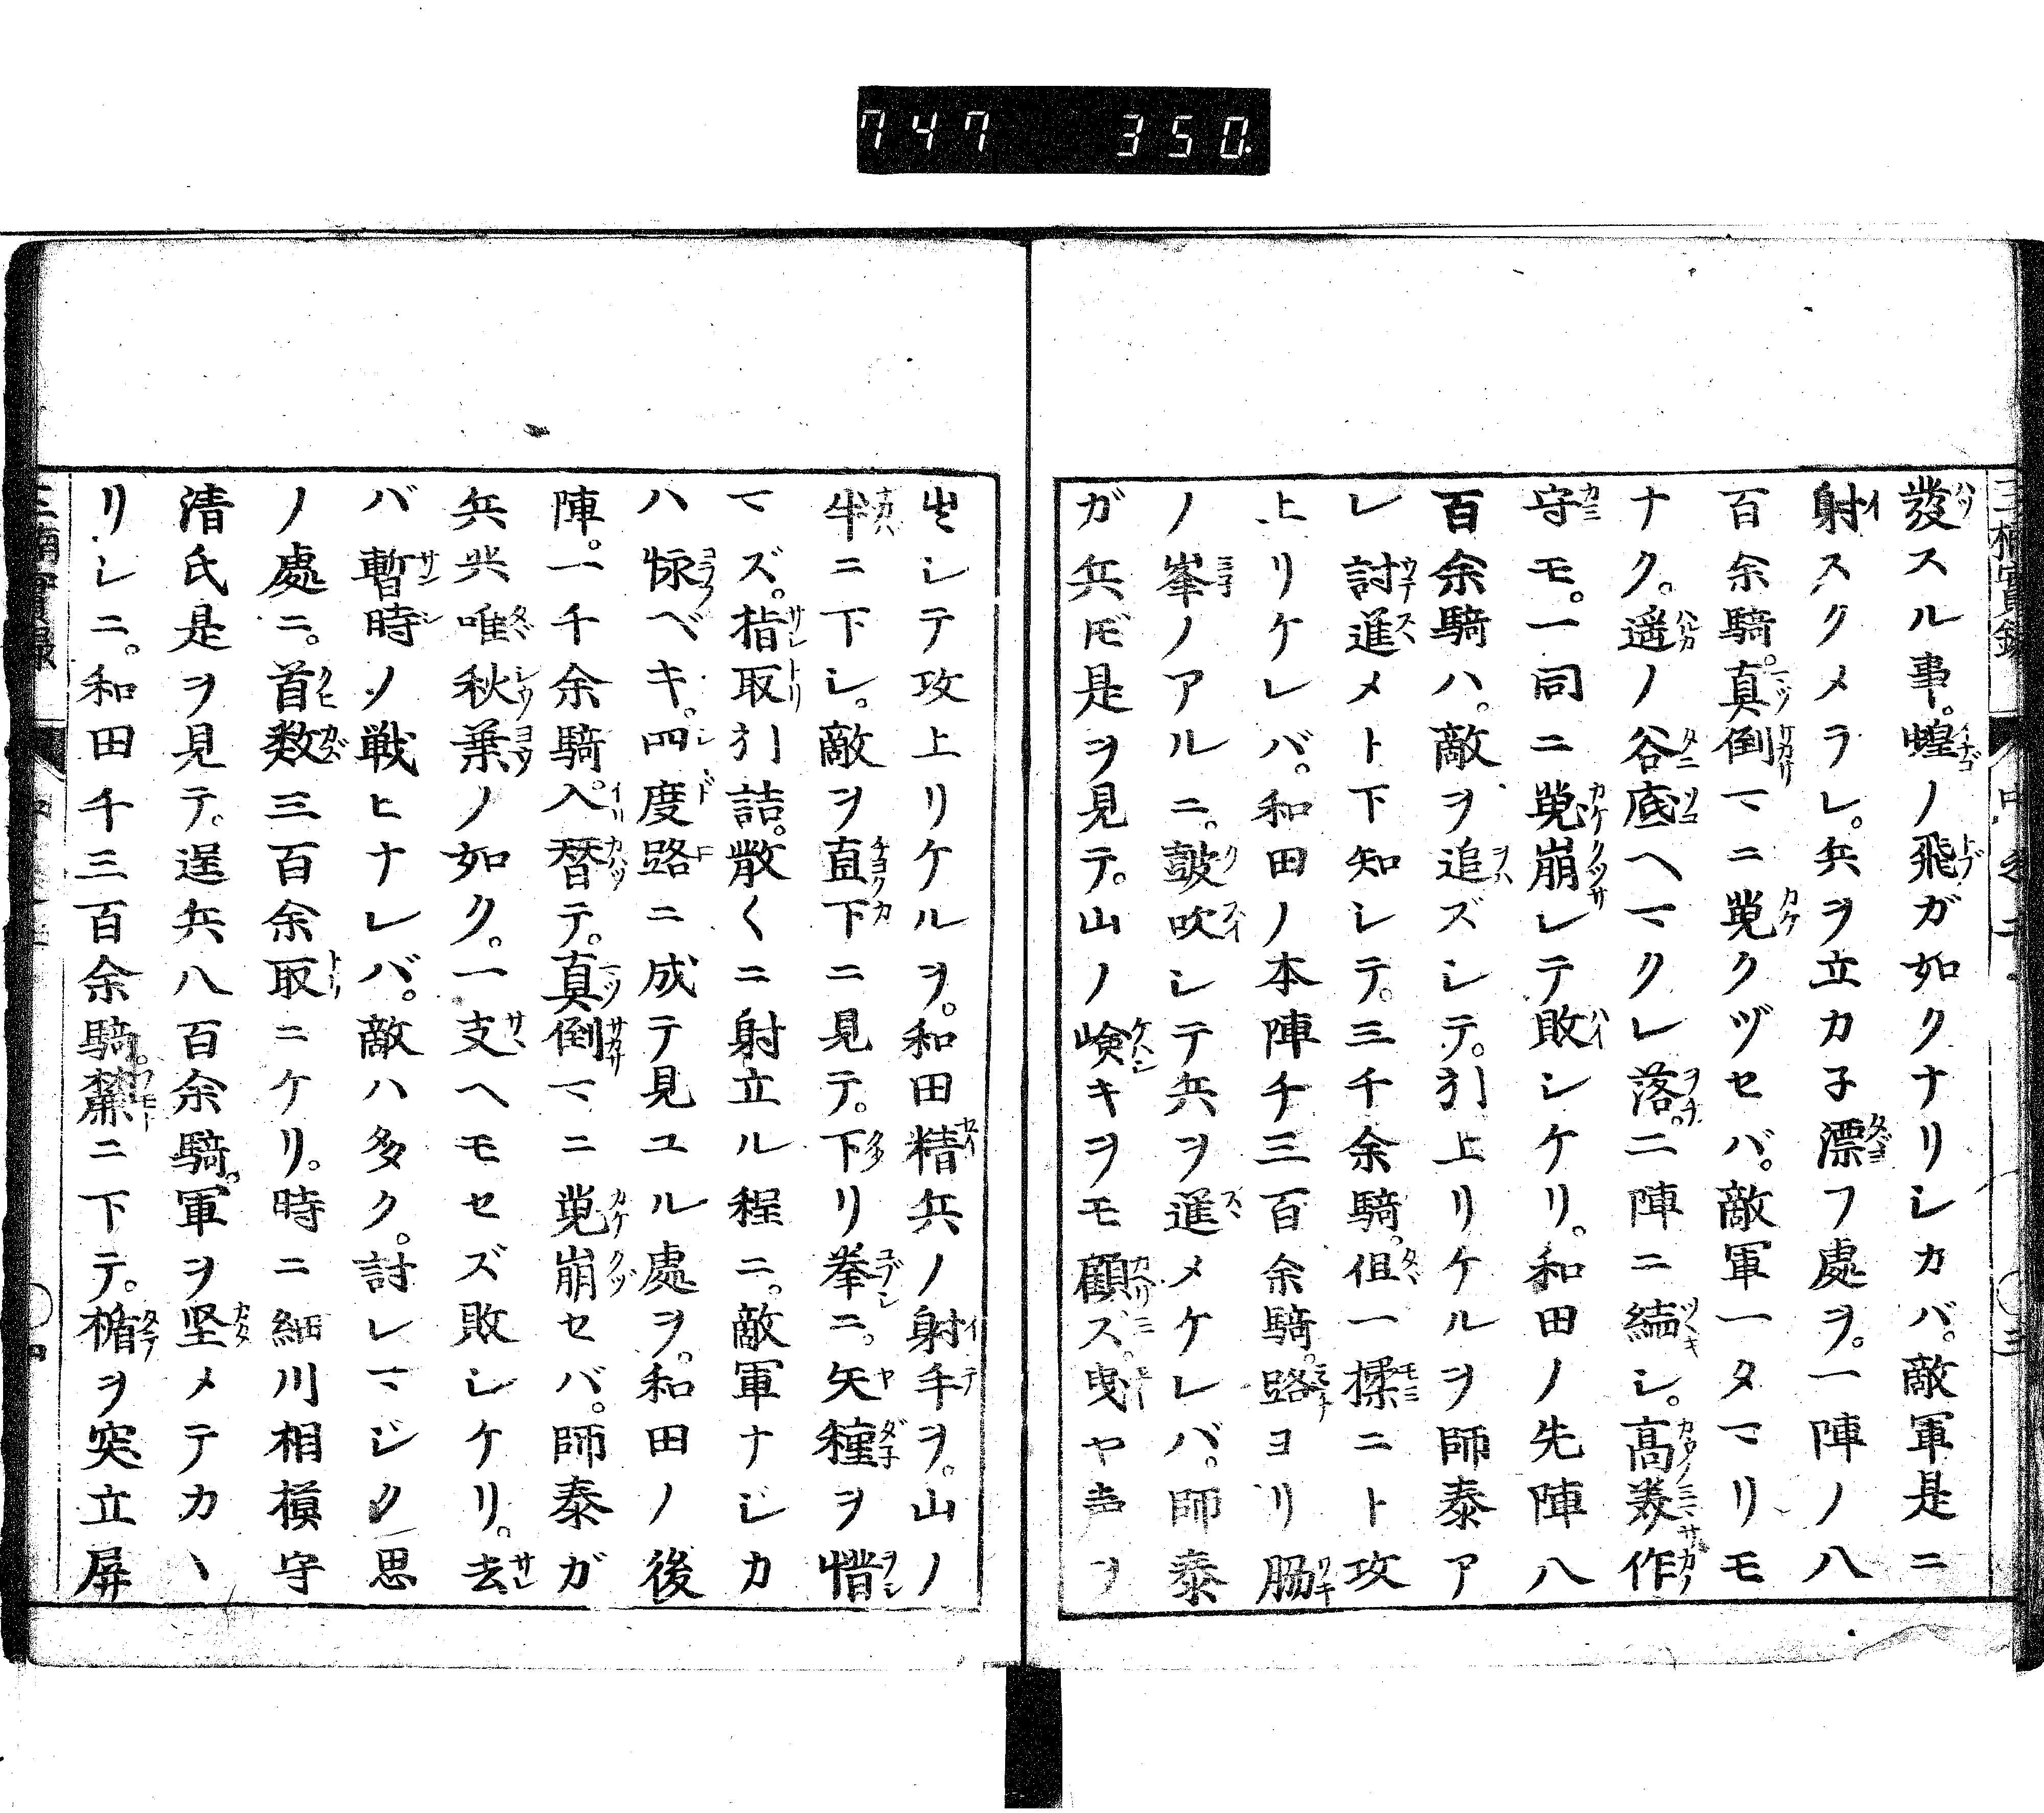 747 350.
三楠實録
發スル事。蝗ノ飛ガ如クナリシカバ。敵軍是ニ
射スクメラレ。兵ヲ立カ子漂フ處ヲ。一陣ノ八
百余騎。真倒マニ蒐クヅセバ。敵軍一タマリモ
ナク。遥ノ谷底ヘマクレ落。二陣ニ續シ。高美作
守モ。一同ニ蒐崩レテ敗シケリ。和田ノ先陣八
百余騎ハ。敵ヲ追ズシテ。引上リケルヲ師泰ア
レ討進メト下知シテ。三千余騎。但一揉ニト攻
上リケレバ。和田ノ本陣千三百余騎。路ヨリ脇
ノ峯ノアルニ。皷吹シテ兵ヲ進メケレバ。師泰
ガ兵𪜈是ヲ見テ。山ノ嶮キヲモ顧ズ。曳ヤ声ヲ
出シテ攻上リケルヲ。和田精兵ノ射手ヲ。山ノ
半ニ下シ。敵ヲ直下ニ見テ。下リ拳ニ。矢種ヲ惜
マズ。指取引詰。散〱ニ射立ル程ニ。敵軍ナジカ
ハ怺ベキ。四度路ニ成テ見ユル處ヲ。和田ノ後
陣。一千余騎。入替テ。真倒マニ蒐崩セバ。師泰ガ
兵共唯秋葉ノ如ク。一支ヘモセズ敗シケリ。去
バ暫時ノ戦ヒナレバ。敵ハ多ク。討レマジクノ思
ノ處ニ。首数三百余取ニケリ。時ニ細川相模守
清氏是ヲ見テ。逞兵八百余騎。軍ヲ堅メテカヽ
リシニ。和田千三百余騎。麓ニ下テ。楯ヲ突立屏